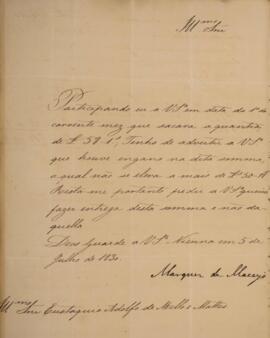 Illmo Snr
Participando eu a V.S. em data do 1º do
corrente mez que sacava a quantia
de £ 59-1, Tenho de advertir a V.S.
que houve engano na dita somma,
a qual não se eleva a mais de £ 50-18
Resta-me portanto pedir a V.S. queira
fazer entrega desta somma e não da
quella
Deos Guarde a V.S. Vienna em 5 de
Julho de 1830
Marquez de Maceyó
Illmo Snr Eustaquio Adolfo de Mello e Mattos